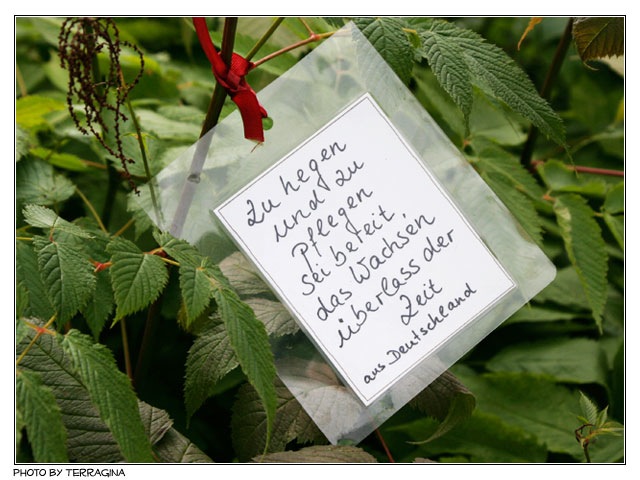 zu hegen
und zu
Pflegen
sei bereit
das Wachsen
überlass der
Zeit
aus Deutschland
PHOTO BY TERRAGINA